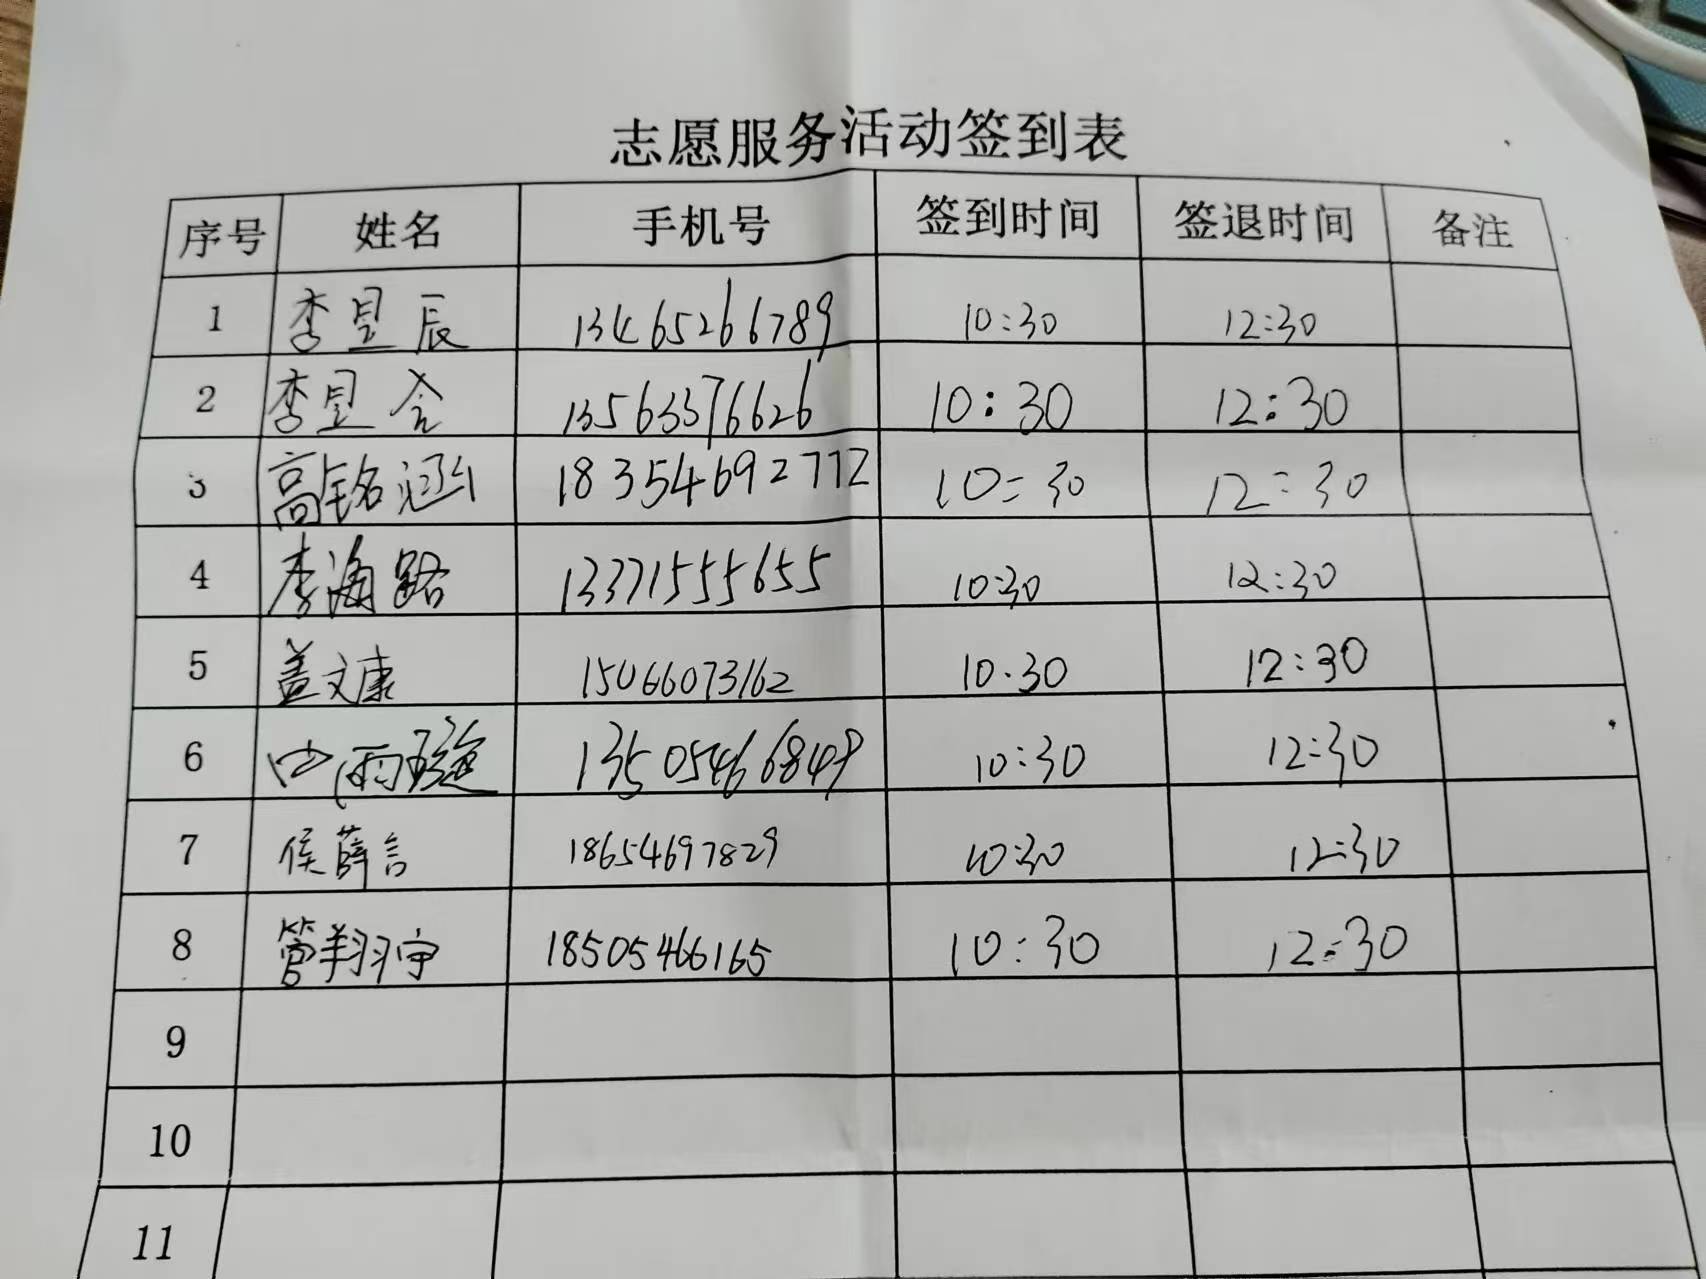 志愿服务活动签到表
序号 姓名 手机号 签到时间 签退时间 备注
1 李昱辰 13465266789 10:30 12:30
2 李昱含 13563376626 10:30 12:30
3 高铭涵 18354692772 10:30 12:30
4 李海路 13371555655 10:30 12:30
5 盖文康 15066073162 10:30 12:30
6 13505466849 10:30 12:30
7 侯薛言 18654697829 10:30 12:30
8 管翔宇 18505466165 10:30 12:30
9
10
11